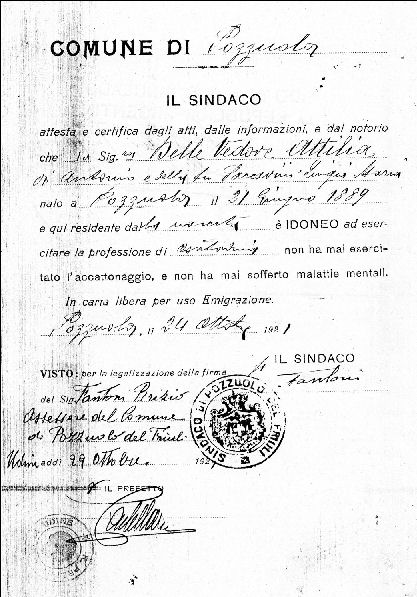 COMUNE DI Pozzuolo
IL SINDACO
attesta e certifica dagli atti, dalle informazioni, e dal notorio
che la Sig.ra Delle Vedove Attilia
di Antonio e della fu Maria
nato a Pozzuolo il 21 Giugno 1889
e qui residente dalla nascita è IDONEO ad eser-
citare la professione di non ha mai eserci-
tato l'accattonaggio, e non ha mai sofferto malattie mentali.
In carta libera per uso Emigrazione.
Pozzuolo, il 24 Ottobre 1921
IL SINDACO
Fantoni
VISTO: per la legalizzazione della firma
del Sig. Fantoni
Assessore del Comune
di Pozzuolo del Friuli
Udine addì 29 Ottobre 192
IL PREFETTO
SINDACO DI POZZUOLO DEL FRIULI
UDINE